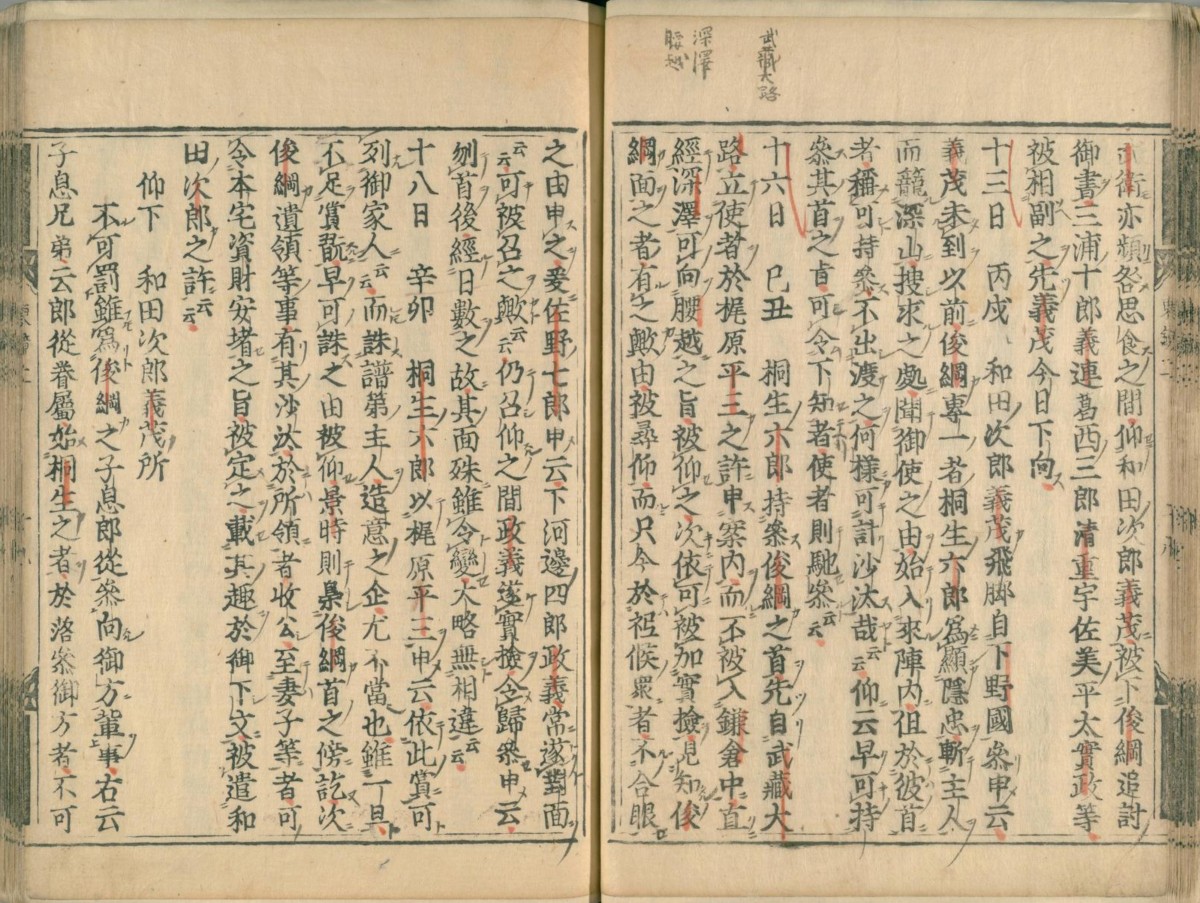 武藏大路
深澤
腰越
衡亦頻咎思食之間仰和田次郎義茂被下俊綱追討
御書三浦十郎義連葛西三郎清重宇佐美平太實政等
被相副之先義茂今日下向
十三日 丙戌 和田次郎義茂飛脚自下野國參申云
義茂未到以前俊綱專一者桐生六郎爲顯隱忠斬主人
而籠深山搜求之處聞御使之由始入來陣内但於彼首
者稱可持參不出渡之何樣可計沙汰哉云仰云早可持
參其首之旨可令下知者使者則馳參云
十六日 巳丑 桐生六郎持參俊綱之首先自武藏大
路立使者於梶原平三之許申案内而不被入鎌倉中直
經深澤可向腰越之旨被仰之次依可被加實撿見知俊
綱面之者有之歟由被尋仰而只今於祗候衆者不合眼
之由申之爰佐野七郎申云下河邊四郎政義常遂對面
云可被召之歟云仍召仰之間政義遂實撿令歸參申云
刎首後經日數之故其面殊雖令變大略無相違云
十八日 辛卯 桐生六郎以梶原平三申云依此賞可
列御家人云而誅譜第主人造意之企尤不當也雖一旦
不足賞翫早可誅之由被仰景時則梟俊綱首之傍訖次
俊綱遺領等事有其沙汰於所領者收公至妻子等者可
令本宅資財安堵之旨被定之載其趣於御下文被遣和
田次郎之許云
仰下 和田次郎義茂所
不可罰雖爲俊綱之子息郎從參向御方輩事右云
子息兄弟云郎從眷屬始桐生之者於落參御方者不可